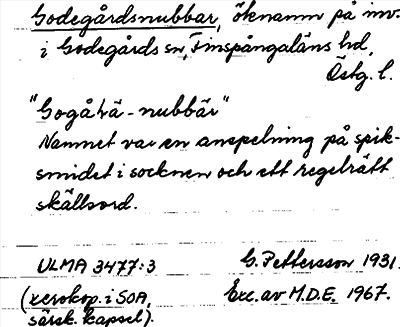 Godegårdsnubbar, öknamn på inv.
i Godegårds sn, Finspångaläns hd,
Östg. l.
"Gogåʹrä-nubbär"
Namnet var en anspelning på spik-
smidet i socknen och ett regelrätt
skällsord.
ULMA 3477:3 G. Pettersson 1931.
(xerokop. i SOA, Exc. av M.D.E. 1967.
särsk. kapsel).